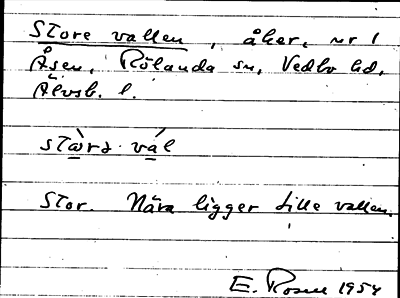 Store vallen, åker, nr 1
Åsen, Rölanda sn, Vedbo hd,
Älvsb. l.
stɷ̀rə vál
Stor. Nära ligger lille vallen.
E. Rosen 1954